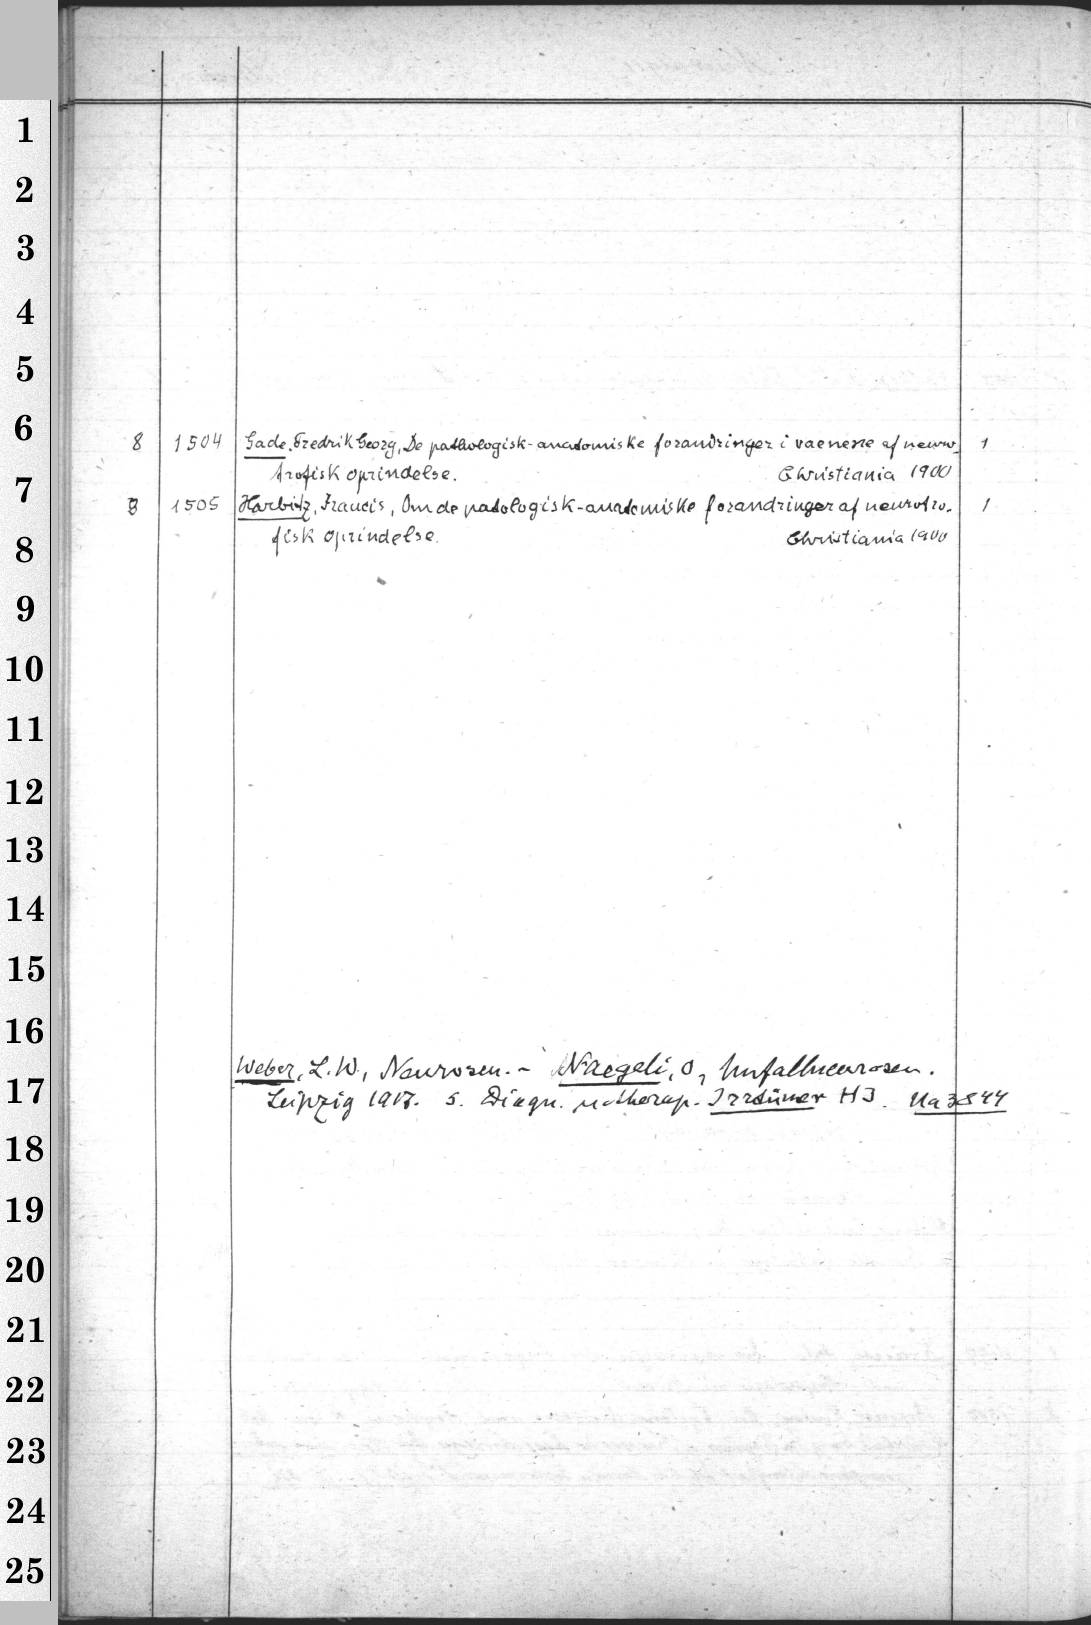 1
2
3
4
5
6
8 1504 Gade, Fredrik Georg, De pathologisk-anatomiske forandringer i vaevene af neuro- 1
trofisk oprindelse. Christiania 1900
7
8 1505 Harbitz, Francis, Om de patologisk-anatomiske forandringer af neurotro- 1
fisk oprindelse. Christiania 1900
8
9
10
11
12
13
14
15
16
Weber, L. W., Neurosen. - Naegeli, O, Unfallneurosen.
17
Leipzig 1917. s. Diagn. u. therap. Irrtümer H3. Ua 3844
18
19
20
21
22
23
24
25